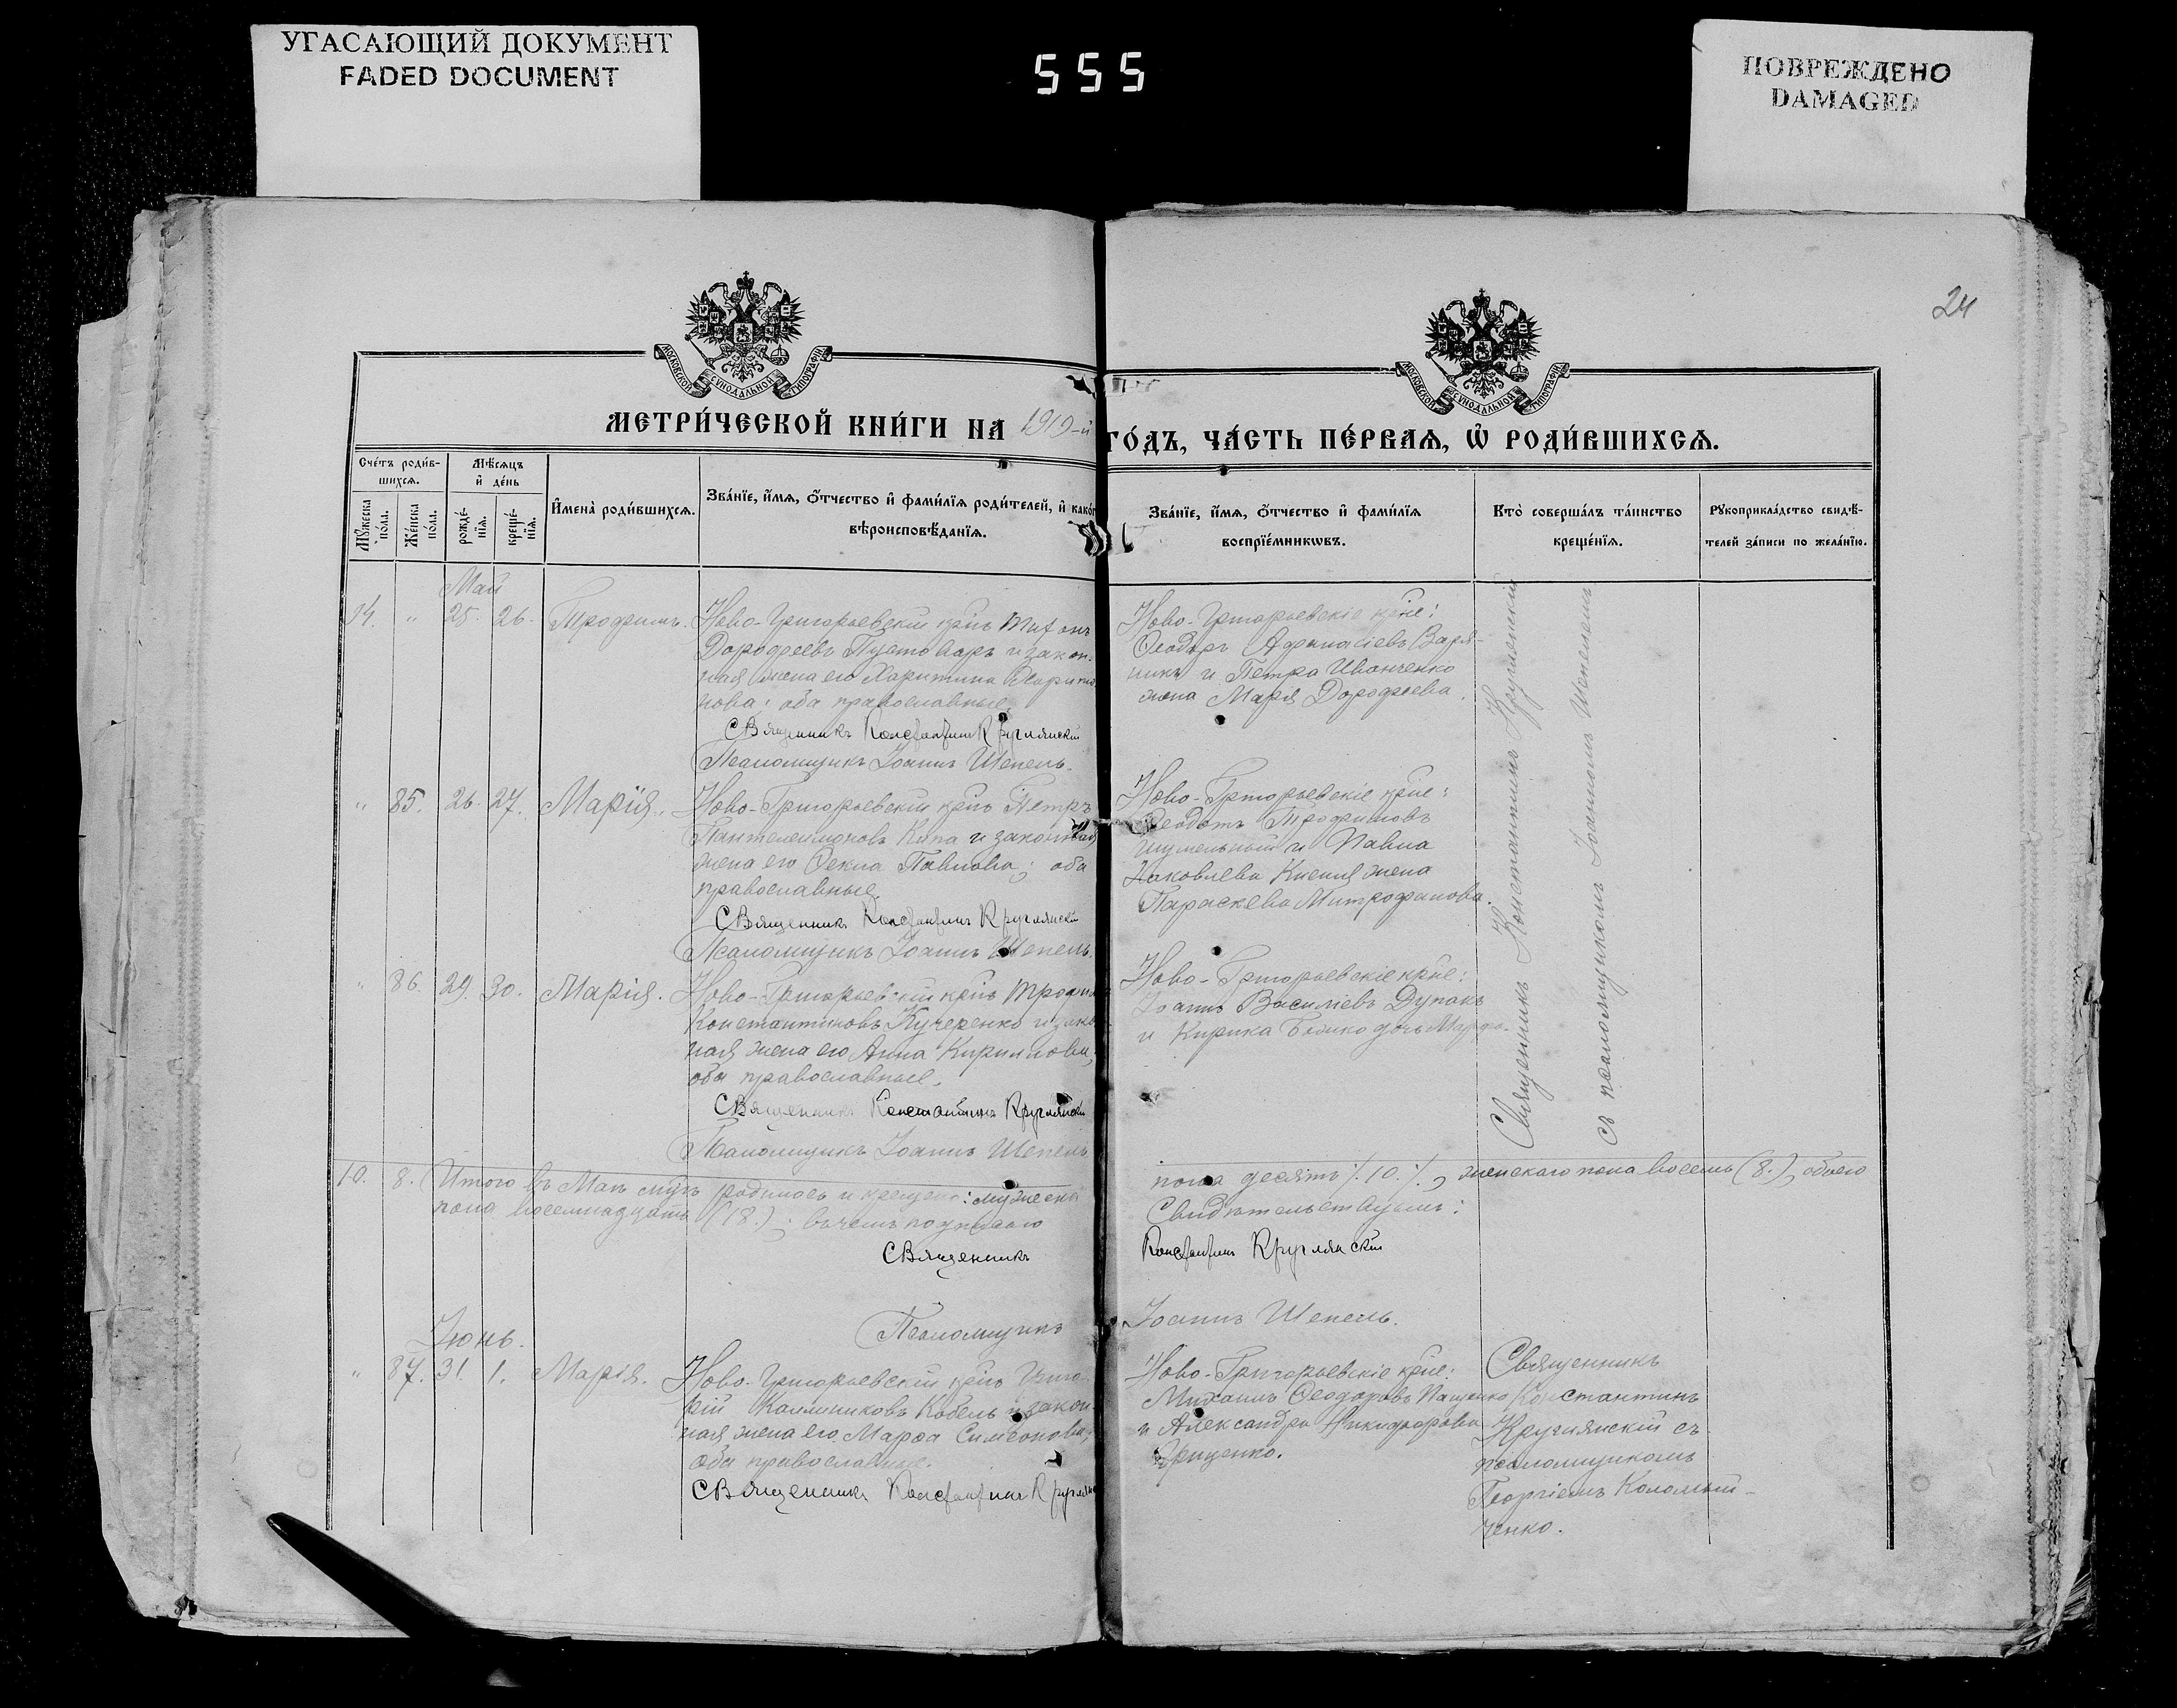 УГАСАЮЩИЙ ДОКУМЕНТ
FADED DOCUMENT
555
ПОВРЕЖДЕНО
DAMAGED
24
МОСКОВСКОЙ СѴНОДАЛЬНОЙ ТИПОГРАФІИ
МОСКОВСКОЙ СѴНОДАЛЬНОЙ ТИПОГРАФІИ
МЕТРИ́ЧЕСКОЙ КНИ́ГИ НА 1919-й
ГО́ДЪ, ЧА́СТЬ ПЕ́РВАѦ, Ѡ҆ РОДИ́ВШИХСѦ.
Сче́тъ роди́в-
шихсѧ.
Мѣ́сѧцъ
и҆ де́нь
Мꙋ́жеска
по́ла.
Же́нска
по́ла.
рожде́-
нїѧ.
креще́-
нїѧ.
И҆мена̀ роди́вшихсѧ.
Зва́нїе, и҆́мѧ, ѻ҆́тчество и҆ фами́лїѧ роди́телей, и҆ како́г
вѣроисповѣ́данїѧ.
Зва́нїе, и҆́мѧ, ѻ҆́тчество и҆ фами́лїѧ
воспрїе́мникѡвъ.
Кто̀ соверша́лъ та́инство
креще́нїѧ.
Рꙋкоприкла́дство свидѣ́-
телей за́писи по жела́нїю.
Май
14. " 25. 26. Трофимъ.
Ново-Григорьевскій крнъ Тихонъ
Дорофеевъ Пустоваръ и закон-
ная жена его Харитина
нова; оба православные.
Священникъ Константинъ Круглянскій
Псаломщикъ Іоаннъ Шепель.
Ново-Григорьевскіе крне:
Ѳеодоръ Афанасіевъ Варя-
никъ и Петра Иванченко
жена Марія Дорофеева.
" 85. 26. 27. Марія.
Ново-Григорьевскій крнъ Петръ
Пантелеимоновъ Кипа и законная
жена его Ѳекла Павлова; оба
православные.
Священникъ Константинъ Круглянскій
Псаломщикъ Іоаннъ Шепель.
Ново-Григорьевскіе крне:
Ѳеодотъ Трофимовъ
и Павла
Яковлева жена
Параскева Митрофанова.
" 86. 29. 30. Марія.
Ново-Григорьевскій крнъ Трофим
Константиновъ Кучеренко и зако
ная жена его Анна Кириллова;
оба православные.
Священникъ Константинъ Круглянскій
Псаломщикъ Іоаннъ Шепель
Ново-Григорьевскіе крне:
Іоаннъ Василіевъ Дупакъ
и Кирика дочь Марфа.
Священникъ Константинъ Круглянскій
съ псаломщикомъ Іоанномъ Шепелемъ
10. 8. Итого въ Маѣ м-цѣ родилось и крещено: мужеска
пола десять /.10./., женскаго пола восемь (8.), обоего
пола восемнадцать (18.); въ чемъ подписью
Свидѣтельствуемъ:
Священникъ Константинъ Круглянскій
Псаломщикъ Іоаннъ Шепель.
Іюнь.
" 87. 31. 1. Марія.
Ново-Григорьевскій крнъ Григо-
рій Каллиниковъ Кобель и закон-
ная жена его Марѳа Симеонова;
оба православные.
Священникъ Константинъ Круглян
Ново-Григорьевскіе крне:
Михаилъ Ѳеодоровъ Пащенко
и Александра Никифорова
Грищенко.
Священникъ
Константинъ
Круглянскій съ
псаломщикомъ
Георгіемъ Коломый-
ченко.